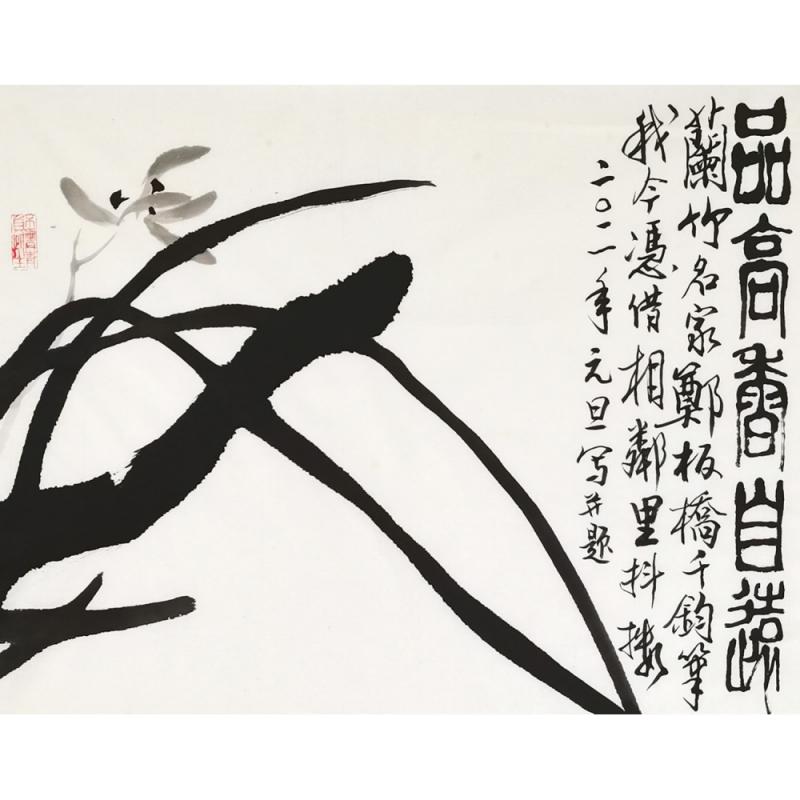 品高香自遠
蘭竹名家鄭板橋千鈞筆
我今憑借相鄰里抖擻
二〇二一年元旦写并題